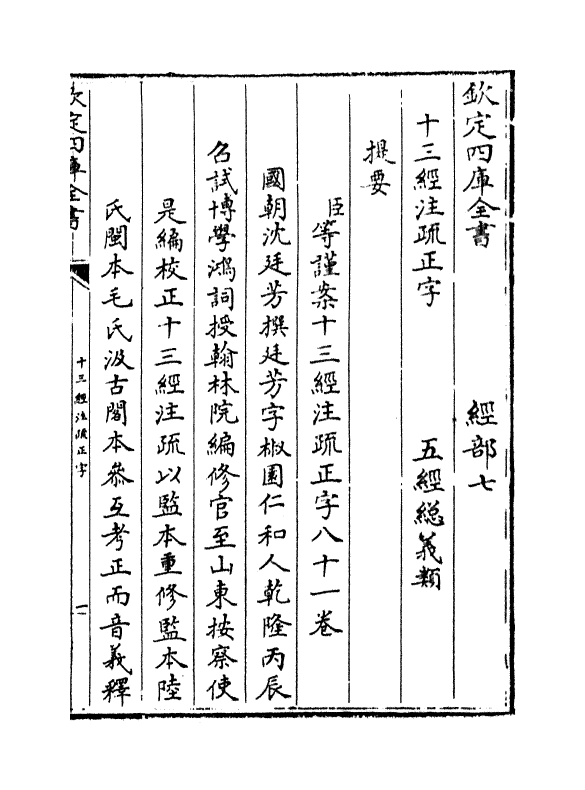 欽定四庫全書　經部七
十三經注疏正字　五經總義類
提要
臣等謹案十三經注疏正字八十一卷
國朝沈廷芳撰廷芳字椒園仁和人乾隆丙辰
召試博學鴻詞授翰林院編修官至山東按察使
是編校正十三經注疏以監本重修監本陸
氏閩本毛氏汲古閣本叅互考正而音義釋
欽定四庫全書
十三經注疏正字
一